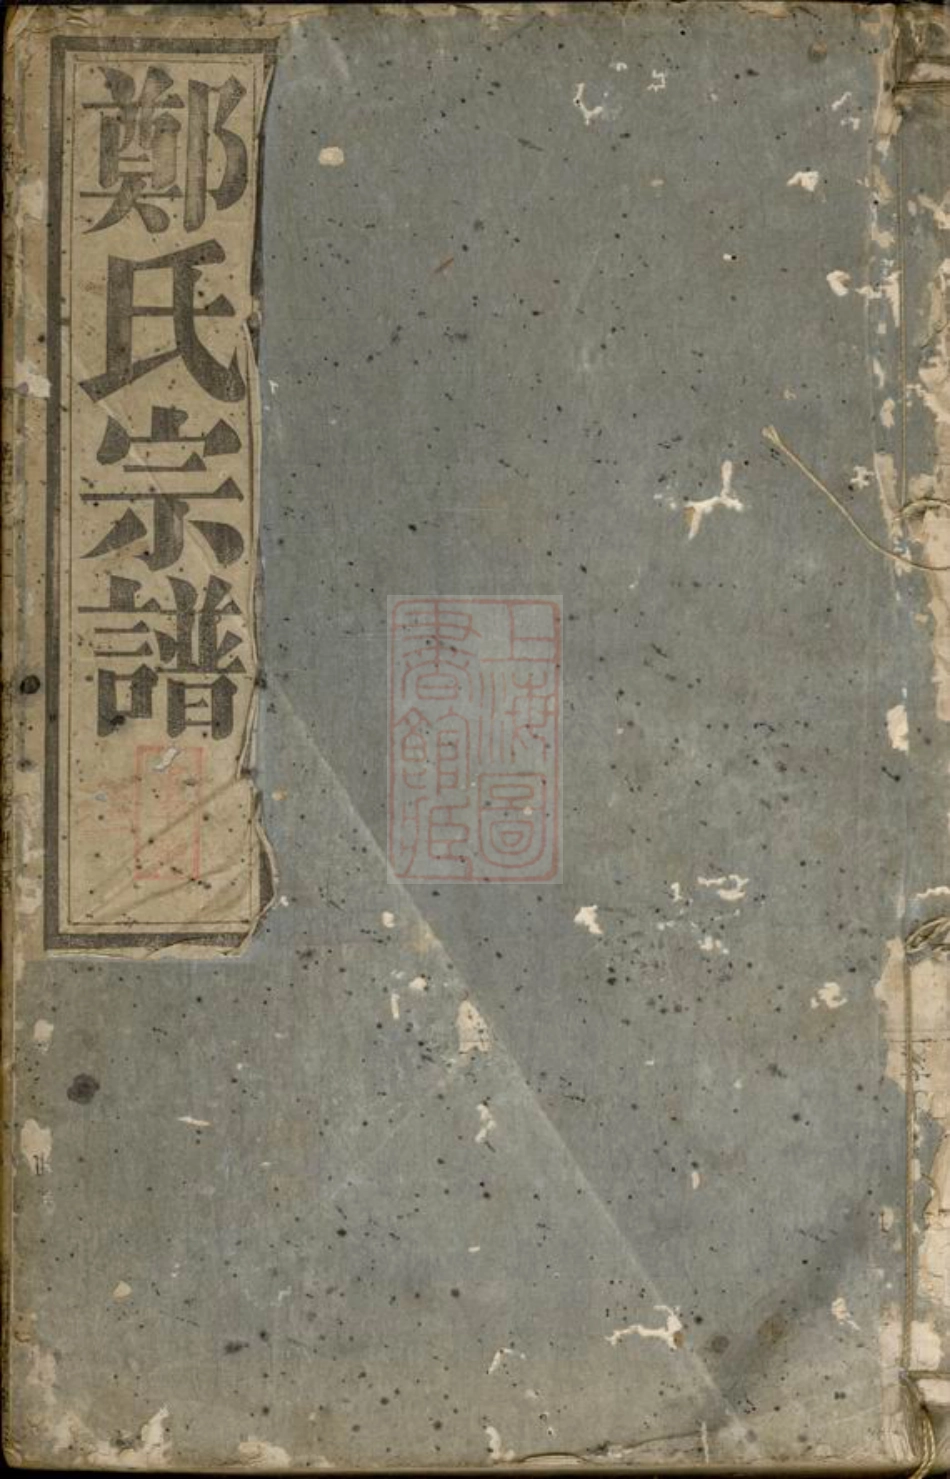 鄭氏宗譜
上海圖
書館藏